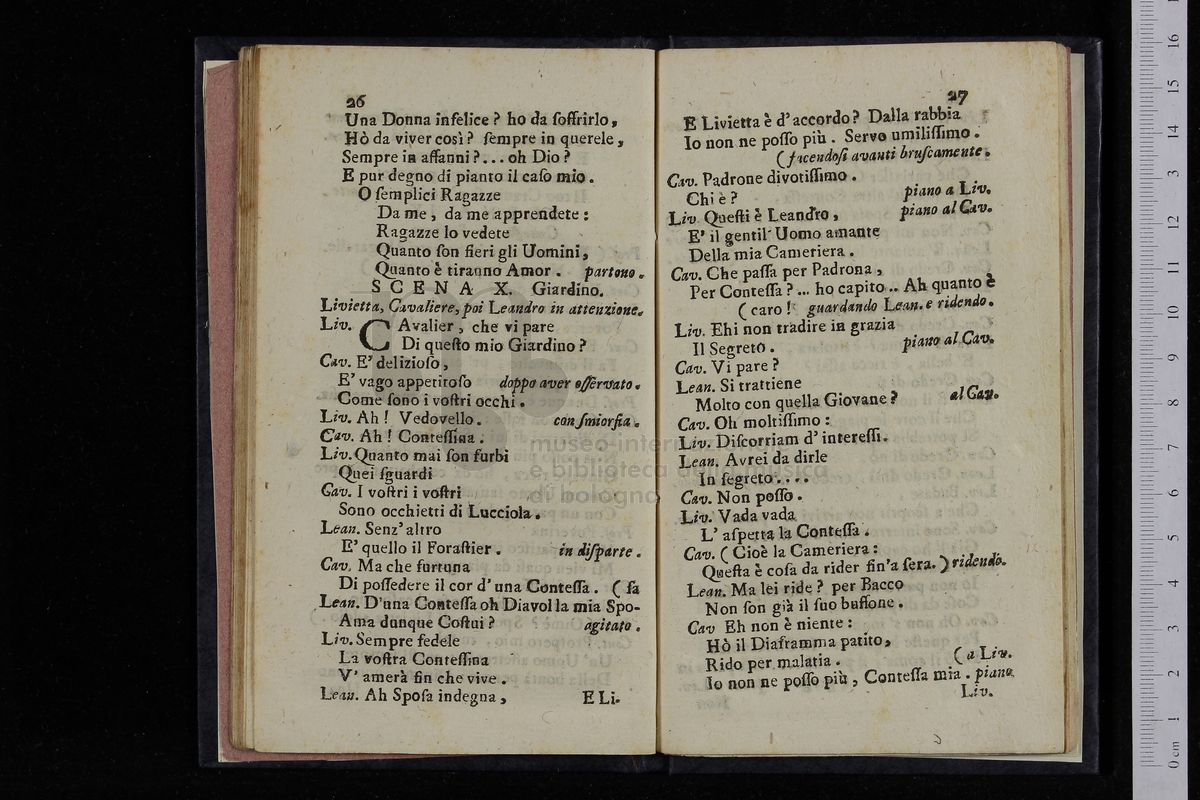 26
Una Donna infelice ? ho da ſoffrirlo,
Hò da viver così ? ſempre in querele,
Sempre in affanni ? ... oh Dio ?
E pur degno di pianto il caſo mio.
O ſemplici Ragazze
Da me, da me apprendete :
Ragazze lo vedete
Quanto ſon fieri gli Uomini,
Quanto è tiranno Amor. partono.
SCENA X. Giardino.
Livietta, Cavaliere, poi Leandro in attenzione.
Liv. CAvalier, che vi pare
Di queſto mio Giardino ?
Cav. E' delizioſo,
E' vago appetitoſo doppo aver oſſervato.
Come ſono i voſtri occhi.
Liv. Ah ! Vedovello. con ſmiorfia.
Cav. Ah ! Conteſſina.
Liv. Quanto mai ſon furbi
Quei ſguardi
Cav. I voſtri i voſtri
Sono occhietti di Lucciola.
Lean. Senz' altro
E' quello il Foraſtier. in diſparte.
Cav. Ma che furtuna
Di poſſedere il cor d' una Conteſſa. ( ſa
Lean. D'una Conteſſa oh Diavol la mia Spo-
Ama dunque Coſtui ? agitato.
Liv. Sempre fedele
La voſtra Conteſſina
V' amerà fin che vive.
Lean. Ah Spoſa indegna, E Li-
27
E Livietta è d' accordo ? Dalla rabbia
Io non ne poſſo più. Servo umiliſſimo.
( facendoſi avanti bruſcamente.
Cav. Padrone divotiſſimo.
Chi è ? piano a Liv.
Liv Queſti è Leandro, piano al Cav.
E' il gentil' Uomo amante
Della mia Cameriera.
Cav. Che paſſa per Padrona,
Per Conteſſa ? ... ho capito .. Ah quanto è
( caro ! guardando Lean. e ridendo.
Liv. Ehi non tradire in grazia
Il Segreto. piano al Cav.
Cav. Vi pare ?
Lean. Si trattiene
Molto con quella Giovane ? al Cav.
Cav. Oh moltiſſimo :
Liv. Diſcorriam d' intereſſi.
Lean. Avrei da dirle
In ſegreto ....
Cav. Non poſſo.
Liv. Vada vada
L' aſpetta la Conteſſa.
Cav. ( Cioè la Cameriera :
Queſta è coſa da rider fin'a ſera. ) ridendo.
Lean. Ma lei ride ? per Bacco
Non ſon già il ſuo buffone.
Cav Eh non è niente :
Hò il Diaframma patito,
Rido per malatia. ( a Liv.
Io non ne poſſo più, Conteſſa mia. piano
Liv.
museo
e biblioteca della musica
di bologna
0 cm 1 2 3 4 5 6 7 8 9 10 11 12 13 14 15 16